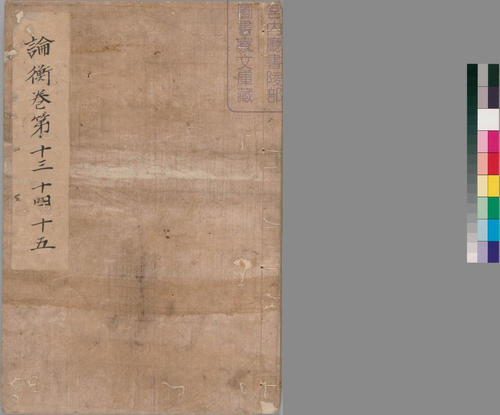 論衡卷第十三十四十五
宮内廳書陵部
圖書寮文庫藏